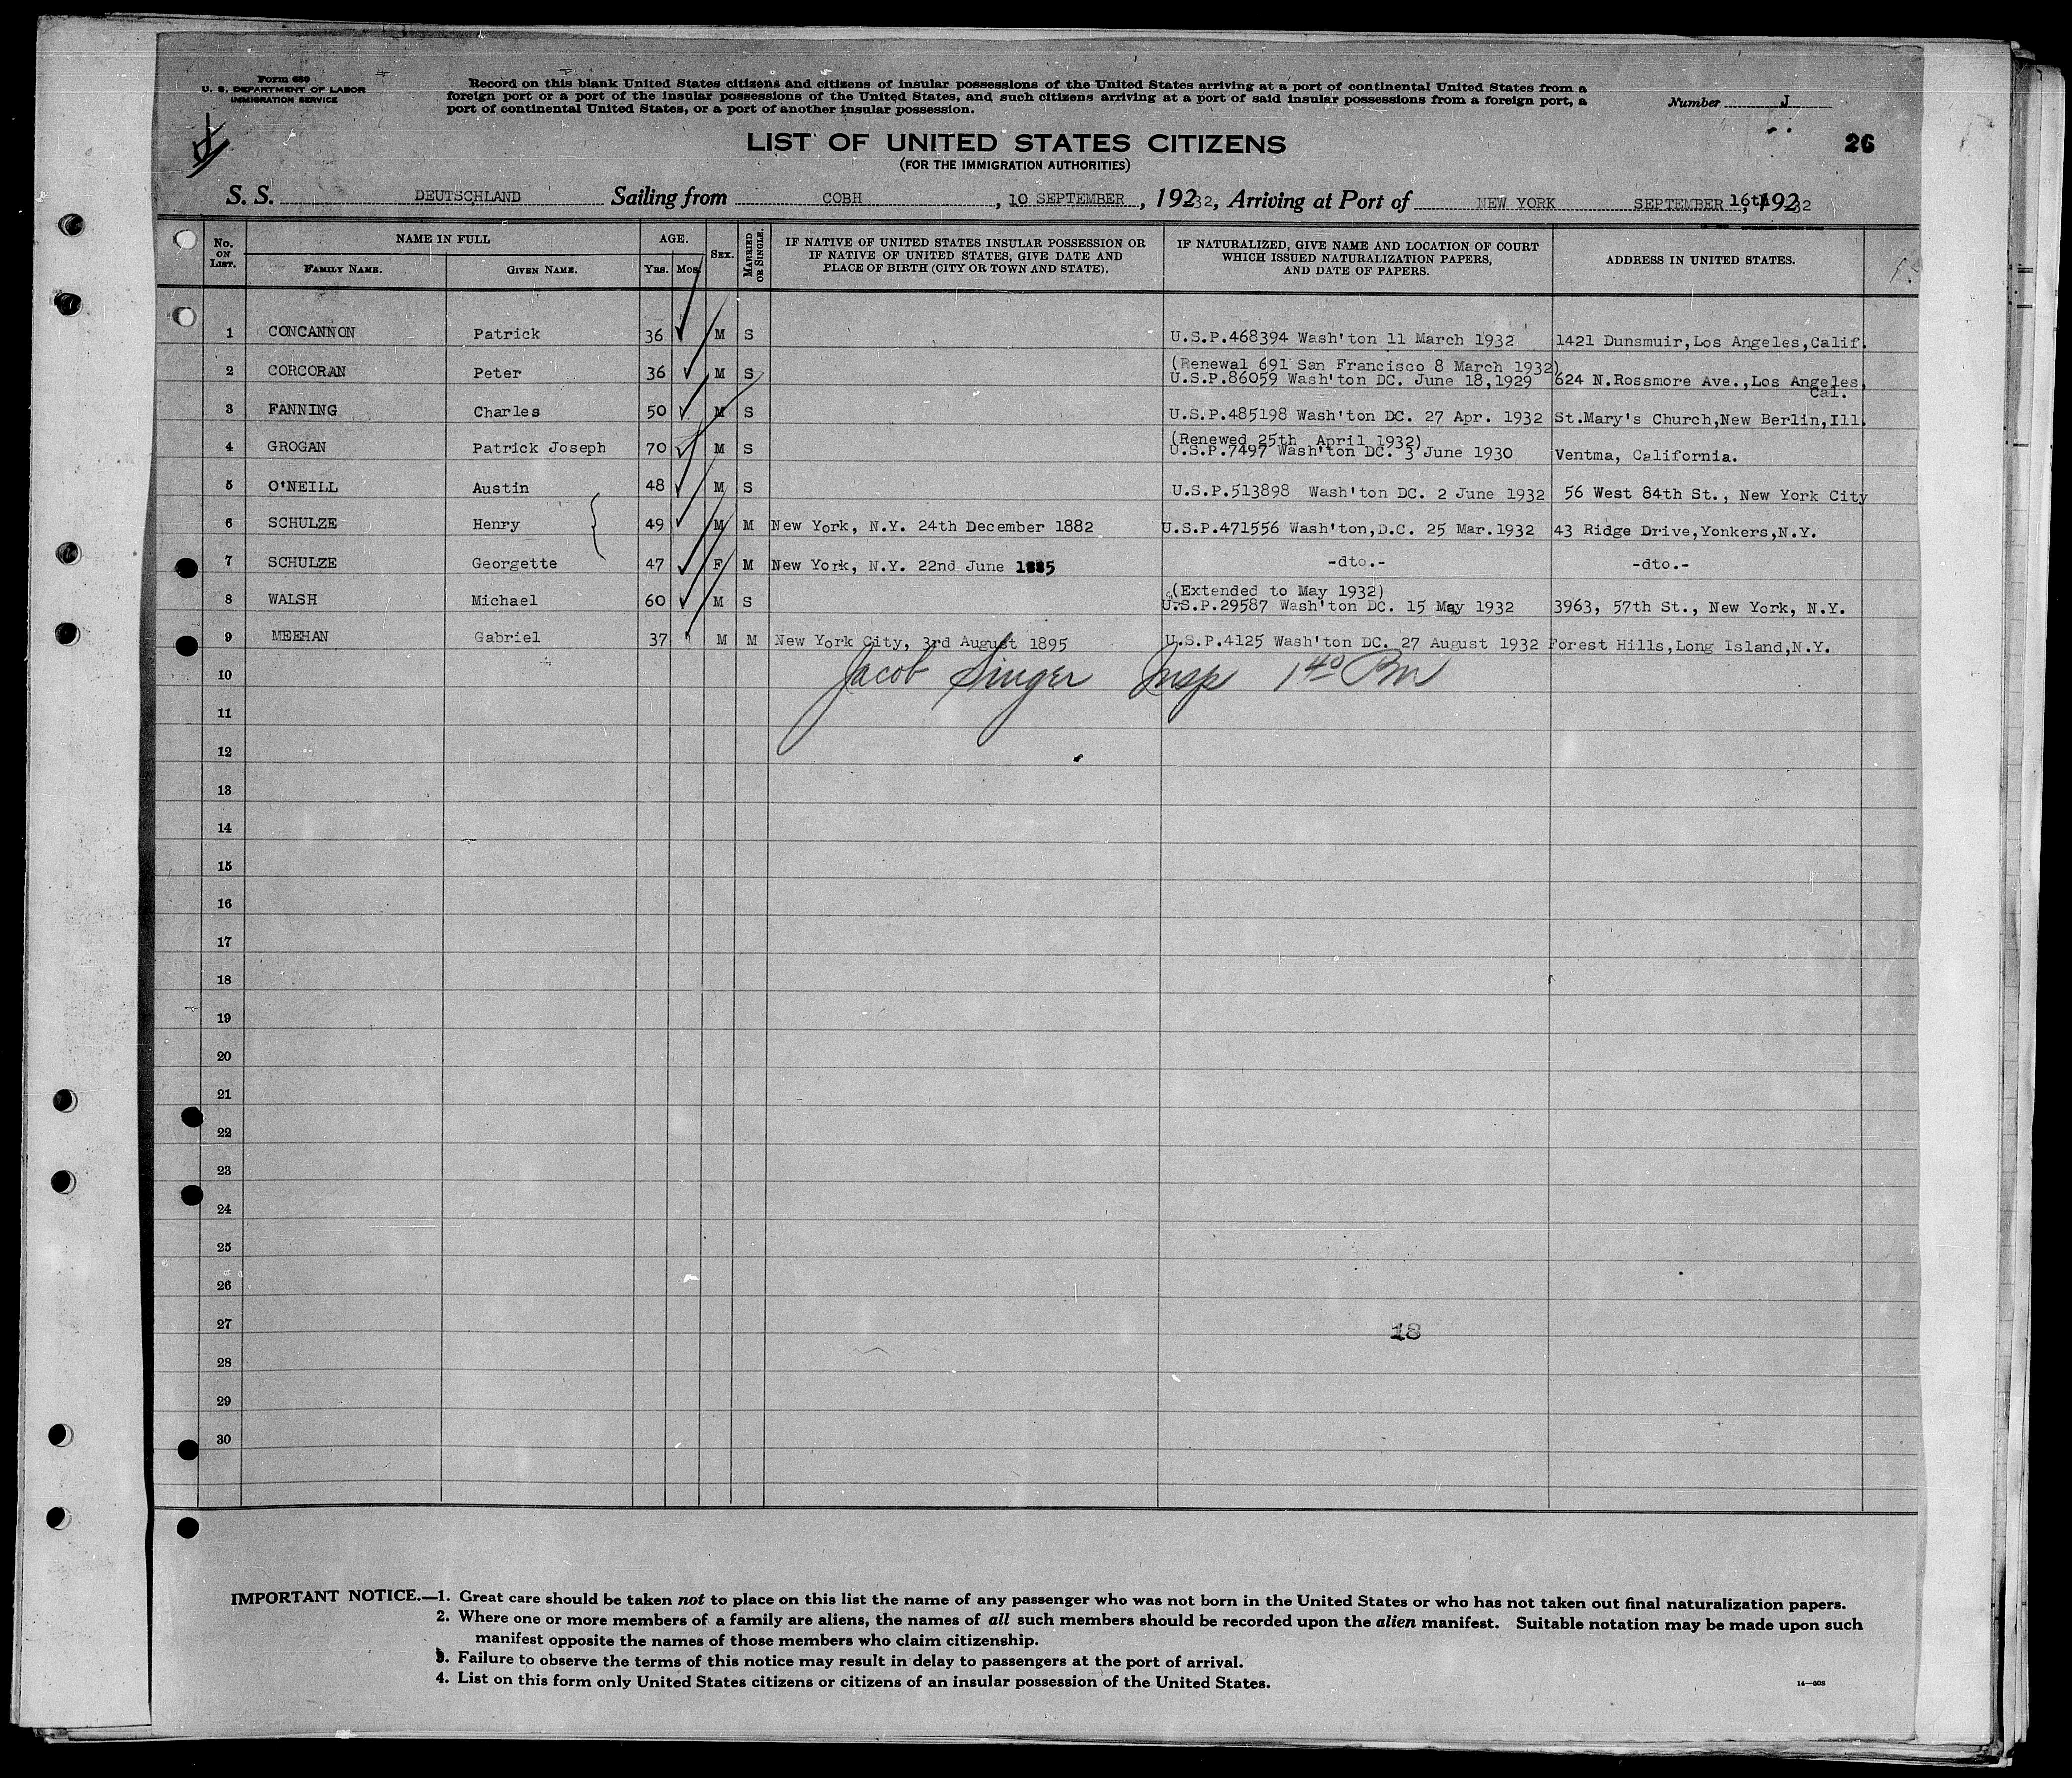 Form 630
U. S. DEPARTMENT OF LABOR
IMMIGRATION SERVICE
Record on this blank United States citizens and citizens of insular possessions of the United States arriving at a port of continental United States from a
foreign port or a port of the insular possessions of the United States, and such citizens arriving at a port of said insular possessions from a foreign port, a
port of continental United States, or a port of another insular possession.
Number J
26
LIST OF UNITED STATES CITIZENS
(FOR THE IMMIGRATION AUTHORITIES)
S. S. DEUTSCHLAND Sailing from COBH, 10 SEPTEMBER, 19232, Arriving at Port of NEW YORK SEPTEMBER 16th, 19232
No. ON LIST. NAME IN FULL AGE. SEX. MARRIED OR SINGLE. IF NATIVE OF UNITED STATES INSULAR POSSESSION OR IF NATIVE OF UNITED STATES, GIVE DATE AND PLACE OF BIRTH (CITY OR TOWN AND STATE). IF NATURALIZED, GIVE NAME AND LOCATION OF COURT WHICH ISSUED NATURALIZATION PAPERS, AND DATE OF PAPERS. ADDRESS IN UNITED STATES.
FAMILY NAME. GIVEN NAME. YRS. MOS.
1 CONCANNON Patrick 36 M S U.S.P.468394 Wash'ton 11 March 1932 1421 Dunsmuir,Los Angeles,Calif.
(Renewal 691 San Francisco 8 March 1932)
2 CORCORAN Peter 36 M S U.S.P.86059 Wash'ton DC. June 18,1929 624 N.Rossmore Ave.,Los Angeles,
Cal.
3 FANNING Charles 50 M S U.S.P.485198 Wash'ton DC. 27 Apr. 1932 St.Mary's Church,New Berlin,Ill.
(Renewed 25th April 1932)
4 GROGAN Patrick Joseph 70 M S U.S.P.7497 Wash'ton DC. 3 June 1930 Ventma, California.
5 O'NEILL Austin 48 M S U.S.P.513898 Wash'ton DC. 2 June 1932 56 West 84th St., New York City
6 SCHULZE Henry 49 M M New York, N.Y. 24th December 1882 U.S.P.471556 Wash'ton,D.C. 25 Mar.1932 43 Ridge Drive,Yonkers,N.Y.
7 SCHULZE Georgette 47 F M New York, N.Y. 22nd June 1885 -dto.- -dto.-
(Extended to May 1932)
8 WALSH Michael 60 M S U.S.P.29587 Wash'ton DC. 15 May 1932 3963, 57th St., New York, N.Y.
9 MEEHAN Gabriel 37 M M New York City, 3rd August 1895 U.S.P.4125 Wash'ton DC. 27 August 1932 Forest Hills,Long Island,N.Y.
Jacob Singer Insp 1 40 PM
10
11
12
13
14
15
16
17
18
19
20
21
22
23
24
25
26
27
18
28
29
30
IMPORTANT NOTICE.—1. Great care should be taken not to place on this list the name of any passenger who was not born in the United States or who has not taken out final naturalization papers.
2. Where one or more members of a family are aliens, the names of all such members should be recorded upon the alien manifest. Suitable notation may be made upon such
manifest opposite the names of those members who claim citizenship.
3. Failure to observe the terms of this notice may result in delay to passengers at the port of arrival.
4. List on this form only United States citizens or citizens of an insular possession of the United States.
14—608